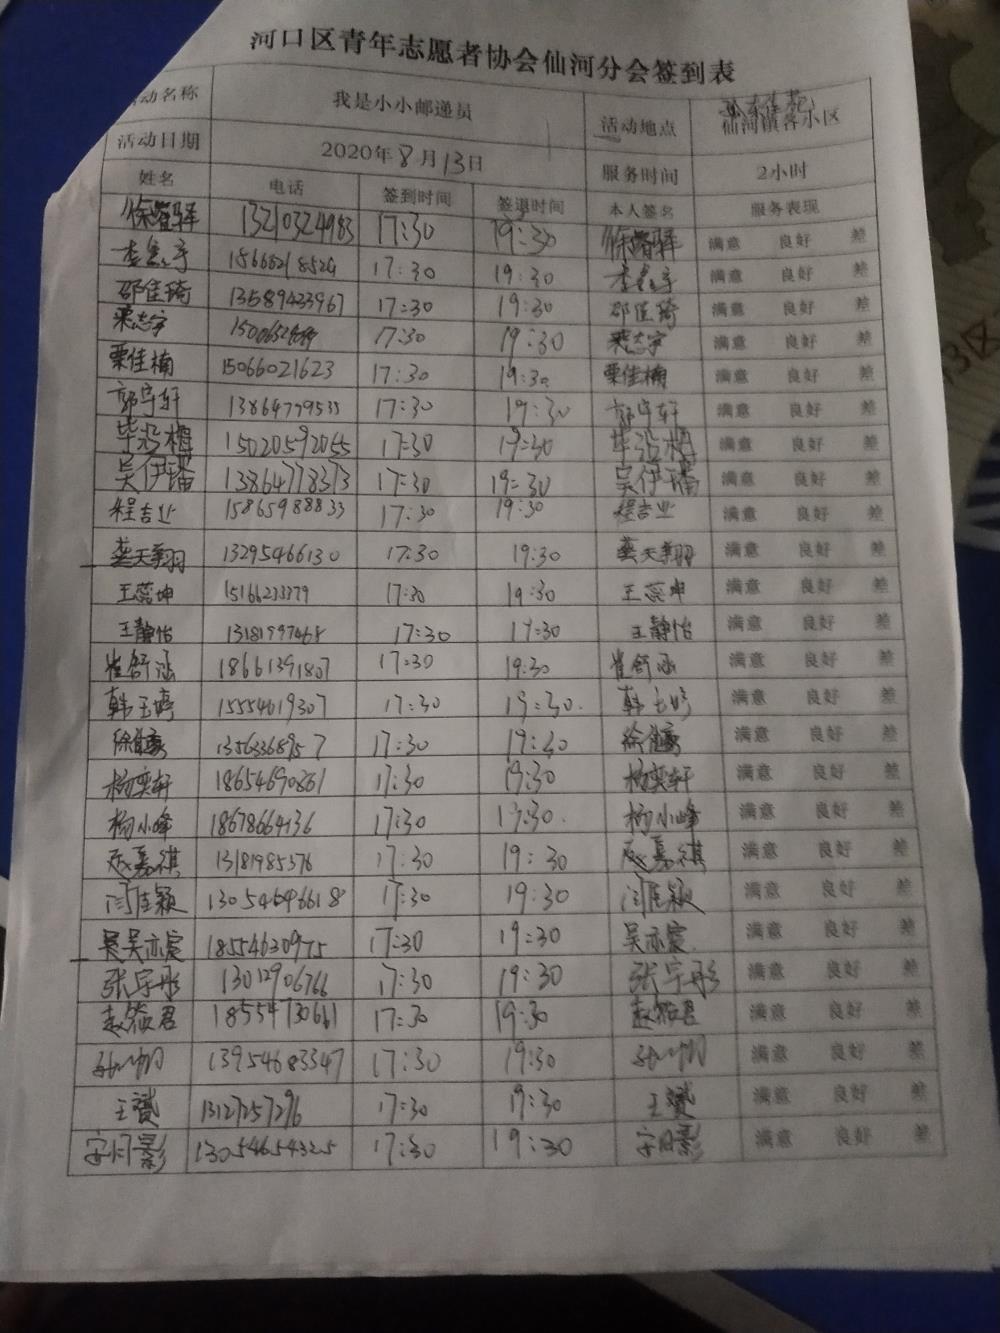 河口区青年志愿者协会仙河分会签到表
活动名称 我是小小邮递员 活动地点 仙河镇各小区
活动日期 2020年8月13日 服务时间 2小时
姓名 电话 签到时间 签退时间 本人签名 服务表现
徐睿驿 13210324983 17:30 19:30 徐睿驿 满意 良好 差
15668218524 17:30 19:30 满意 良好 差
邵佳琦 13589433967 17:30 19:30 邵佳琦 满意 良好 差
栗志宇 17:30 19:30 栗志宇 满意 良好 差
栗佳楠 15066021623 17:30 19:30 栗佳楠 满意 良好 差
郭宇轩 13864779533 17:30 19:30 郭宇轩 满意 良好 差
15020592065 17:30 19:30 满意 良好 差
吴伊璠 13864778373 17:30 19:30 吴伊璠 满意 良好 差
程吉业 15865988833 17:30 19:30 程吉业 满意 良好 差
龚天翔 13295466130 17:30 19:30 龚天翔 满意 良好 差
王蕊坤 15166233379 17:30 19:30 王蕊坤 满意 良好 差
王静怡 13181997468 17:30 19:30 王静怡 满意 良好 差
崔舒涵 18661391807 17:30 19:30 崔舒涵 满意 良好 差
韩玉婷 15554619307 17:30 19:30. 满意 良好 差
17:30 19:30 满意 良好 差
杨奕轩 18654690861 17:30 19:30 杨奕轩 满意 良好 差
杨小峰 18678664136 17:30 19:30. 杨小峰 满意 良好 差
赵嘉祺 13181985376 17:30 19:30 赵嘉祺 满意 良好 差
闫佳颖 13054646618 17:30 19:30 闫佳颖 满意 良好 差
吴亦宸 18554630975 17:30 19:30 吴亦宸 满意 良好 差
张宇彤 13012906766 17:30 19:30 张宇彤 满意 良好 差
赵筱君 18554730661 17:30 19:30 赵筱君 满意 良好 差
13954683347 17:30 19:30 满意 良好 差
王赟 13127257296 17:30 19:30 王赟 满意 良好 差
13054654325 17:30 19:30 满意 良好 差